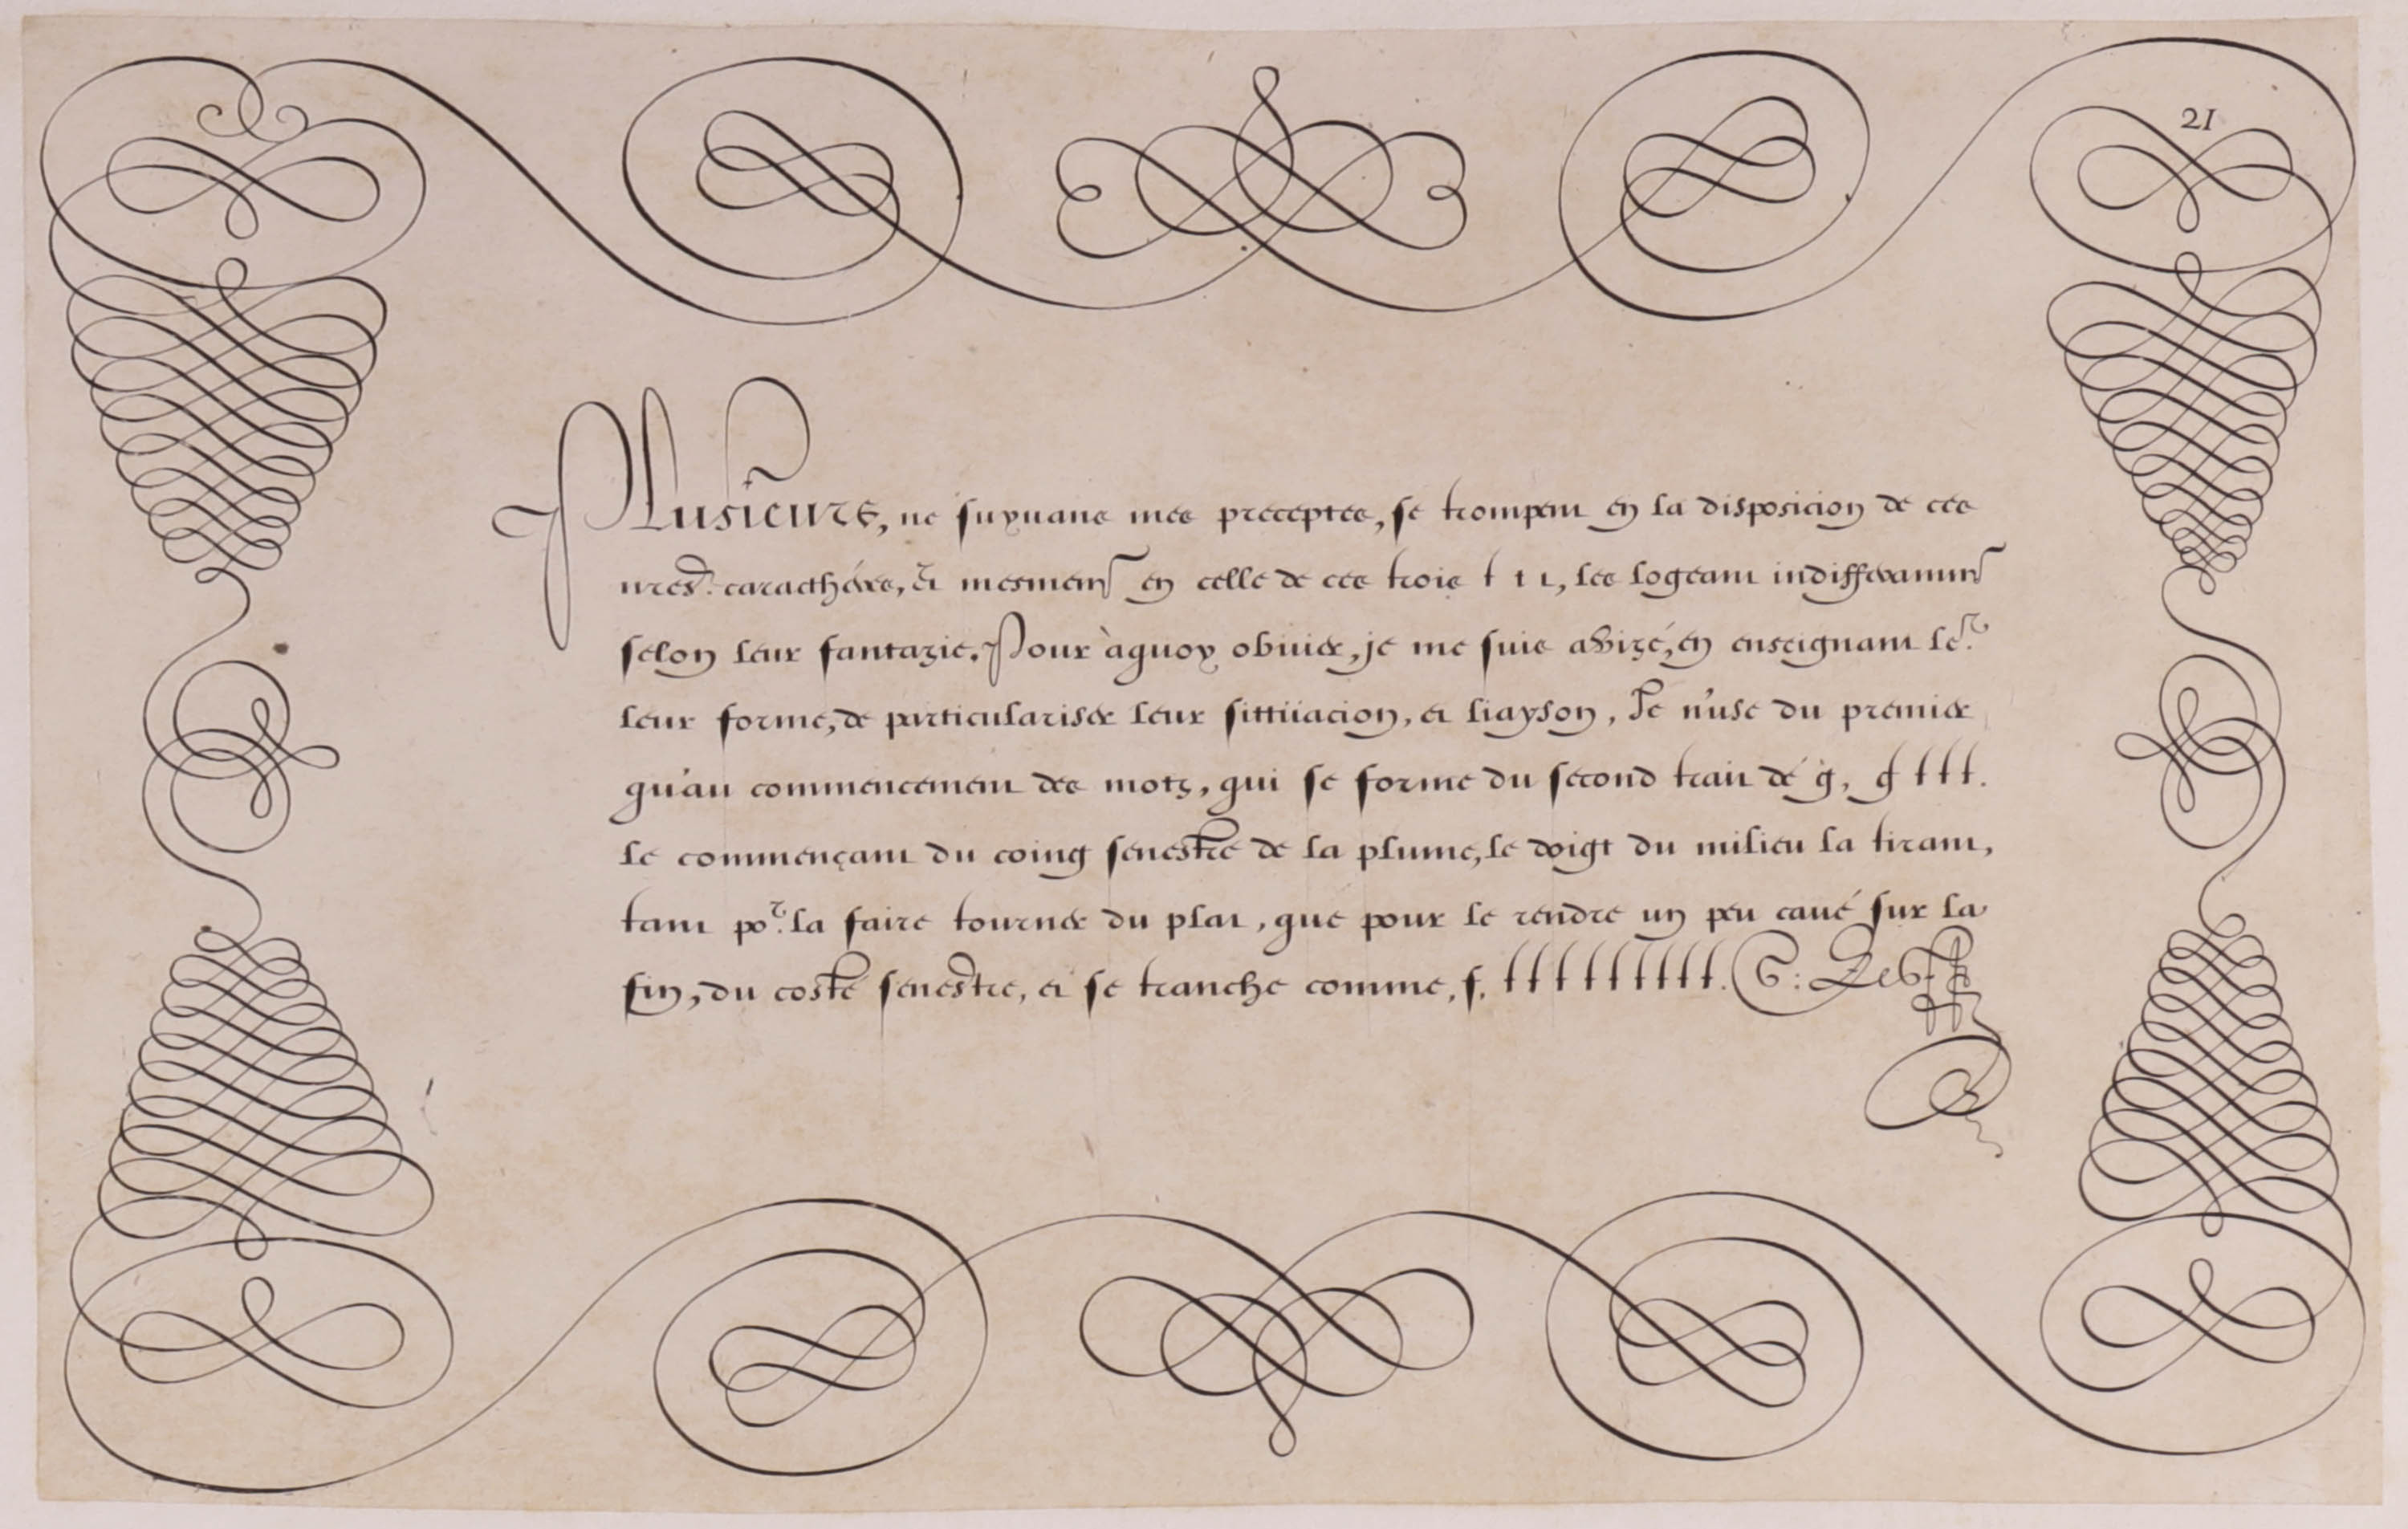 21
PLusieurs, ne suyuans mes preceptes, se trompent en la disposicion de ces
nres. caracthéres, et mesment en celle de ces trois t t t, les logeant indifferamment
selon leur fantazie. Pour àquoy obuier, je me suis avizé, en enseignant le.r
leur forme, de particulariser leur sittüacion, et liayson, Je n'use du premier
qu'au commencement des motz, qui se forme du second trait de g, g t t t.
Le commençant du coing senestre de la plume, le doigt du milieu la tirant,
tant po.r la faire tourner du plat, que pour le rendre un peu caué sur la
fin, du costé senestre, et se tranche comme, f, t t t t t t t t t.